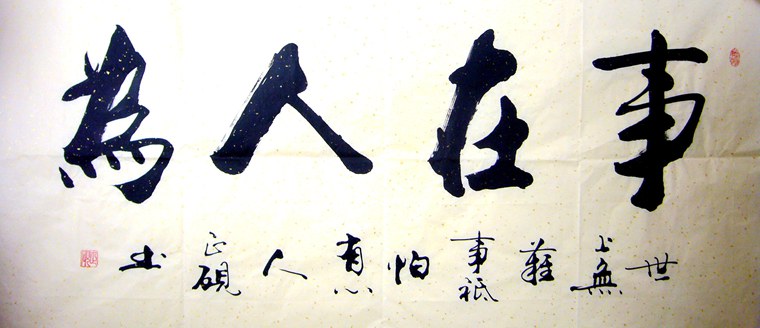 事在人為
世上無難事祇怕有心人正硯书